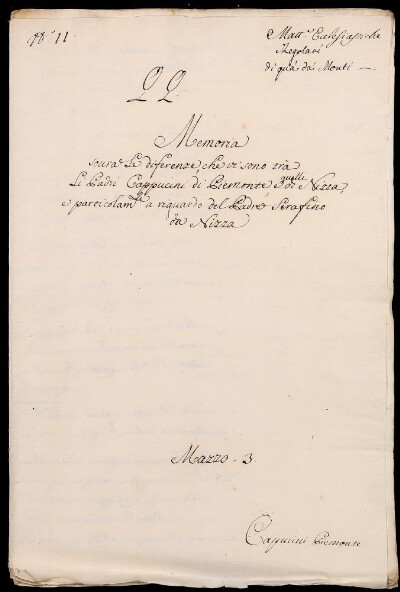 N.° 11
Matt.e Eclesiastiche
Regolari
di quà da' Monti —
Q Q
Memoria
soura Le diferenze, che vi sono trà
Li Padri Cappucini di Piemonte, e quelli di Nizza,
e particolarm.te a riguardo del Padre Serafino
da Nizza
Mazzo - 3.
Cappucini Piemonte